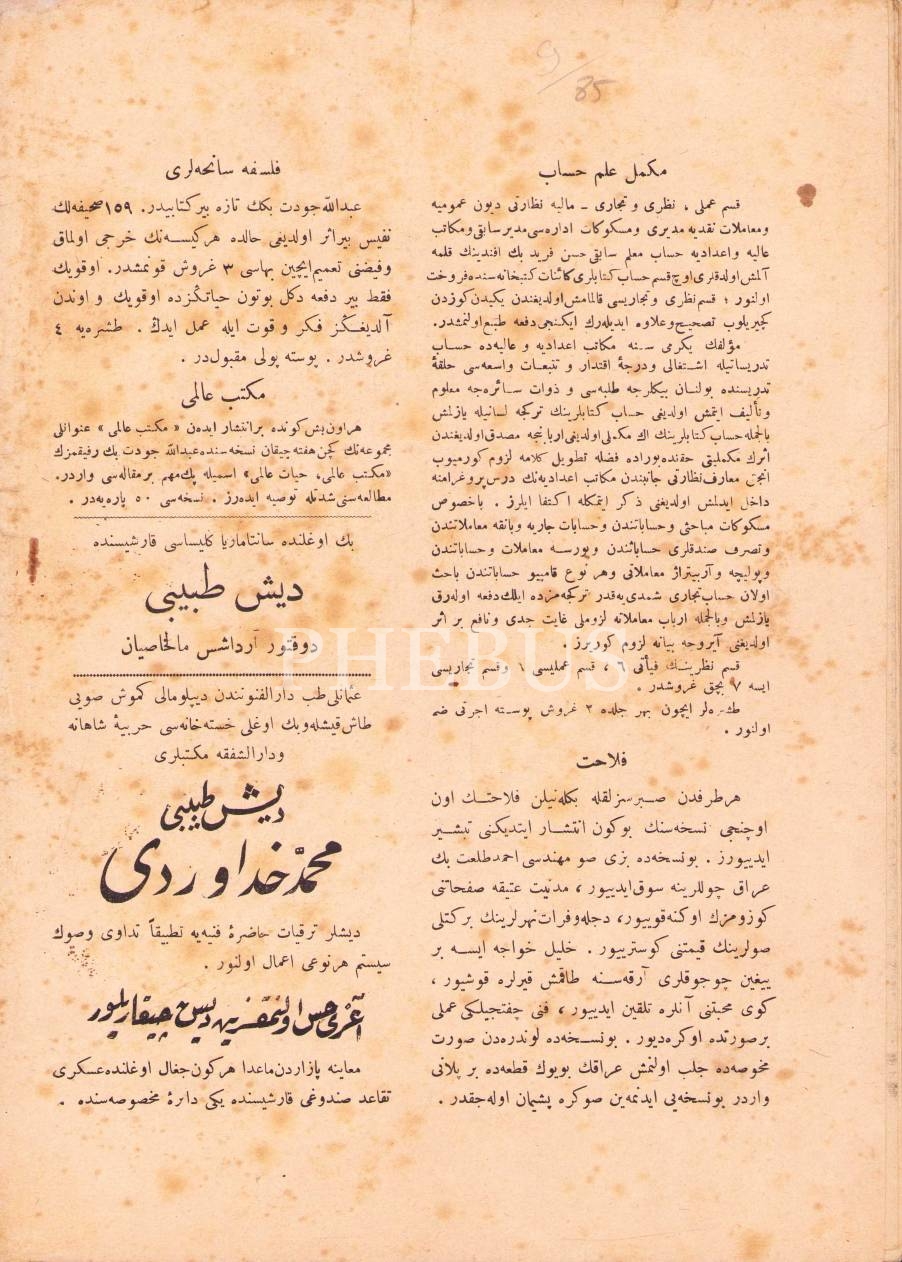 9/85
مكمل علم حساب
قسم عملی ، نظری و تجاری ـ مالیه نظارتی دیون عمومیه
و معاملات نقدیه مدیری و مسکوکات اداره‌سی مدیر سابقی و مکاتب
عالیه و اعدادیه حساب معلم سابقی حسن فرید بك افندینك قلمه
آلمش اولدقلری اوچ قسم حساب کتابلری کائنات کتبخانه‌سنده فروخت
اولنور ؛ قسم نظری و تجاریسی قالمامش اولدیغندن یکیدن کوزدن
کچیریلوب تصحیح و علاوه ایدیله‌رك ایکنجی دفعه طبع اولنمشدر.
مؤلفك یکرمی سنه مکاتب اعدادیه و عالیه‌ده حساب
تدریساتیله اشتغالی و درجهٔ اقتدار و تتبعات واسعه‌سی حلقهٔ
تدریسنده بولنان بیکلرجه طلبه‌سی و ذوات سائره‌جه معلوم
و تألیف ایتمش اولدیغی حساب کتابلرینك ترکجه لسانیله یازلمش
بالجمله حساب کتابلرینك اك مکملی اولدیغی اربابنجه مصدق اولدیغندن
اثرك مکملیتی حقنده بوراده فضله تطویل کلامه لزوم کورمیوب
انجق معارف نظارتی جانبندن مکاتب اعدادیه‌نك درس پروغرامنه
داخل ایدلمش اولدیغنی ذکر ایتمکله اکتفا ایلرز . باخصوص
مسکوکات مباحثی و حساباتندن و حسابات جاریه و بانقه معاملاتندن
و تصرف صندقلری حساباتندن و بورسه معاملات و حساباتندن
و پولیچه و آربیتراژ معاملاتی و هر نوع قامبیو حساباتندن باحث
اولان حساب تجاری شمدی‌یه قدر ترکجه‌مزده ایلك دفعه اوله‌رق
یازلمش و بالجمله ارباب معاملاته لزوملی غایت جدی و نافع بر اثر
اولدیغنی آیروجه بیانه لزوم کوریرز .
قسم نظرینك فیأتی ٦ ، قسم عملیسی ٦ و قسم تجاریسی
ایسه ٧ بچق غروشدر .
طشره‌لر ایچون بهر جلده ٢ غروش پوسته اجرتی ضم
اولنور .
فلاحت
هر طرفدن صبرسزلقله بکله‌نیلن فلاحتك اون
اوچنجی نسخه‌سنك بوکون انتشار ایتدیکنی تبشیر
ایدییورز . بو نسخه‌ده بزی صو مهندسی احمد طلعت بك
عراق چوللرینه سوق ایدییور ، مدنیت عتیقه صفحاتنی
کوزومزك اوکنه قوییور، دجله و فرات نهرلرینك برکتلی
صولرینك قیمتنی کوستریور . خلیل خواجه ایسه بر
ییغین چوجوقلری آرقه‌سنه طاقمش قیرلره قوشیور ،
کوی محبتنی آنلره تلقین ایدییور ، فنی چفتجیلکی عملی
بر صورتده اوکره‌دیور . بو نسخه‌ده لوندره‌دن صورت
مخصوصه‌ده جلب اولنمش عراقك بویوك قطعه‌ده بر پلانی
واردر بو نسخه‌یی ایدنمه‌ین صوکره پشیمان اوله‌جقدر .
فلسفه سانحه‌لری
عبدالله جودت بكك تازه بیر کتابیدر. ١٥٩ صحیفه‌لك
نفیس بیر اثر اولدیغی حالده هرکیسه‌نك خرجی اولماق
و فیضنی تعمیم ایچین بهاسی ٣ غروش قونمشدر. اوقویك
فقط بیر دفعه دکل بوتون حیاتکزده اوقویك و اوندن
آلدیغکز فکر و قوت ایله عمل ایدك . طشره‌یه ٤
غروشدر . پوسته پولی مقبول‌در .
مکتب عالمی
هر اون بش کونده بر انتشار ایده‌ن « مکتب عالمی » عنوانلی
مجموعه‌نك کچن هفته چیقان نسخه‌سنده عبدالله جودت بك رفیقمزك
«مکتب عالمی، حیات عالمی» اسمیله پك مهم بر مقاله‌سی واردر.
مطالعه‌سنی شدتله توصیه ایده‌رز . نسخه‌سی ٥٠ پاره‌یه‌در .
بك اوغلنده سانتا ماریا کلیساسی قارشیسنده
دیش طبیبی
دوقتور آرداشس مالخاصیان
عثمانلی طب دارالفنوننده‌ن دیپلومالی کموش صویی
طاش قیشله و بك اوغلی خسته‌خانه‌سی حربیهٔ شاهانه
و دارالشفقه مکتبلری
دیش طبیبی
محمد خداوردی
دیشلر ترقیات حاضرهٔ فنیه‌یه تطبیقاً تداوی و صوك
سیستم هر نوعی اعمال اولنور .
آغری حس اولنمقسزین دیش چیقاریلور
معاینه پازاردن ماعدا هرکون جغال اوغلنده عسکری
تقاعد صندوغی قارشیسنده یکی دائرهٔ مخصوصه‌سنده .
PHEBUS